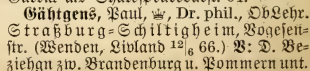 Gähtgens, Paul, ♕, Dr. phil., ObLehr.
Straßburg-Schiltigheim, Vogesen-
str. (Wenden, Livland 12|6 66.) V: D. Be-
ziehgn zw. Brandenburg u. Pommern unt.